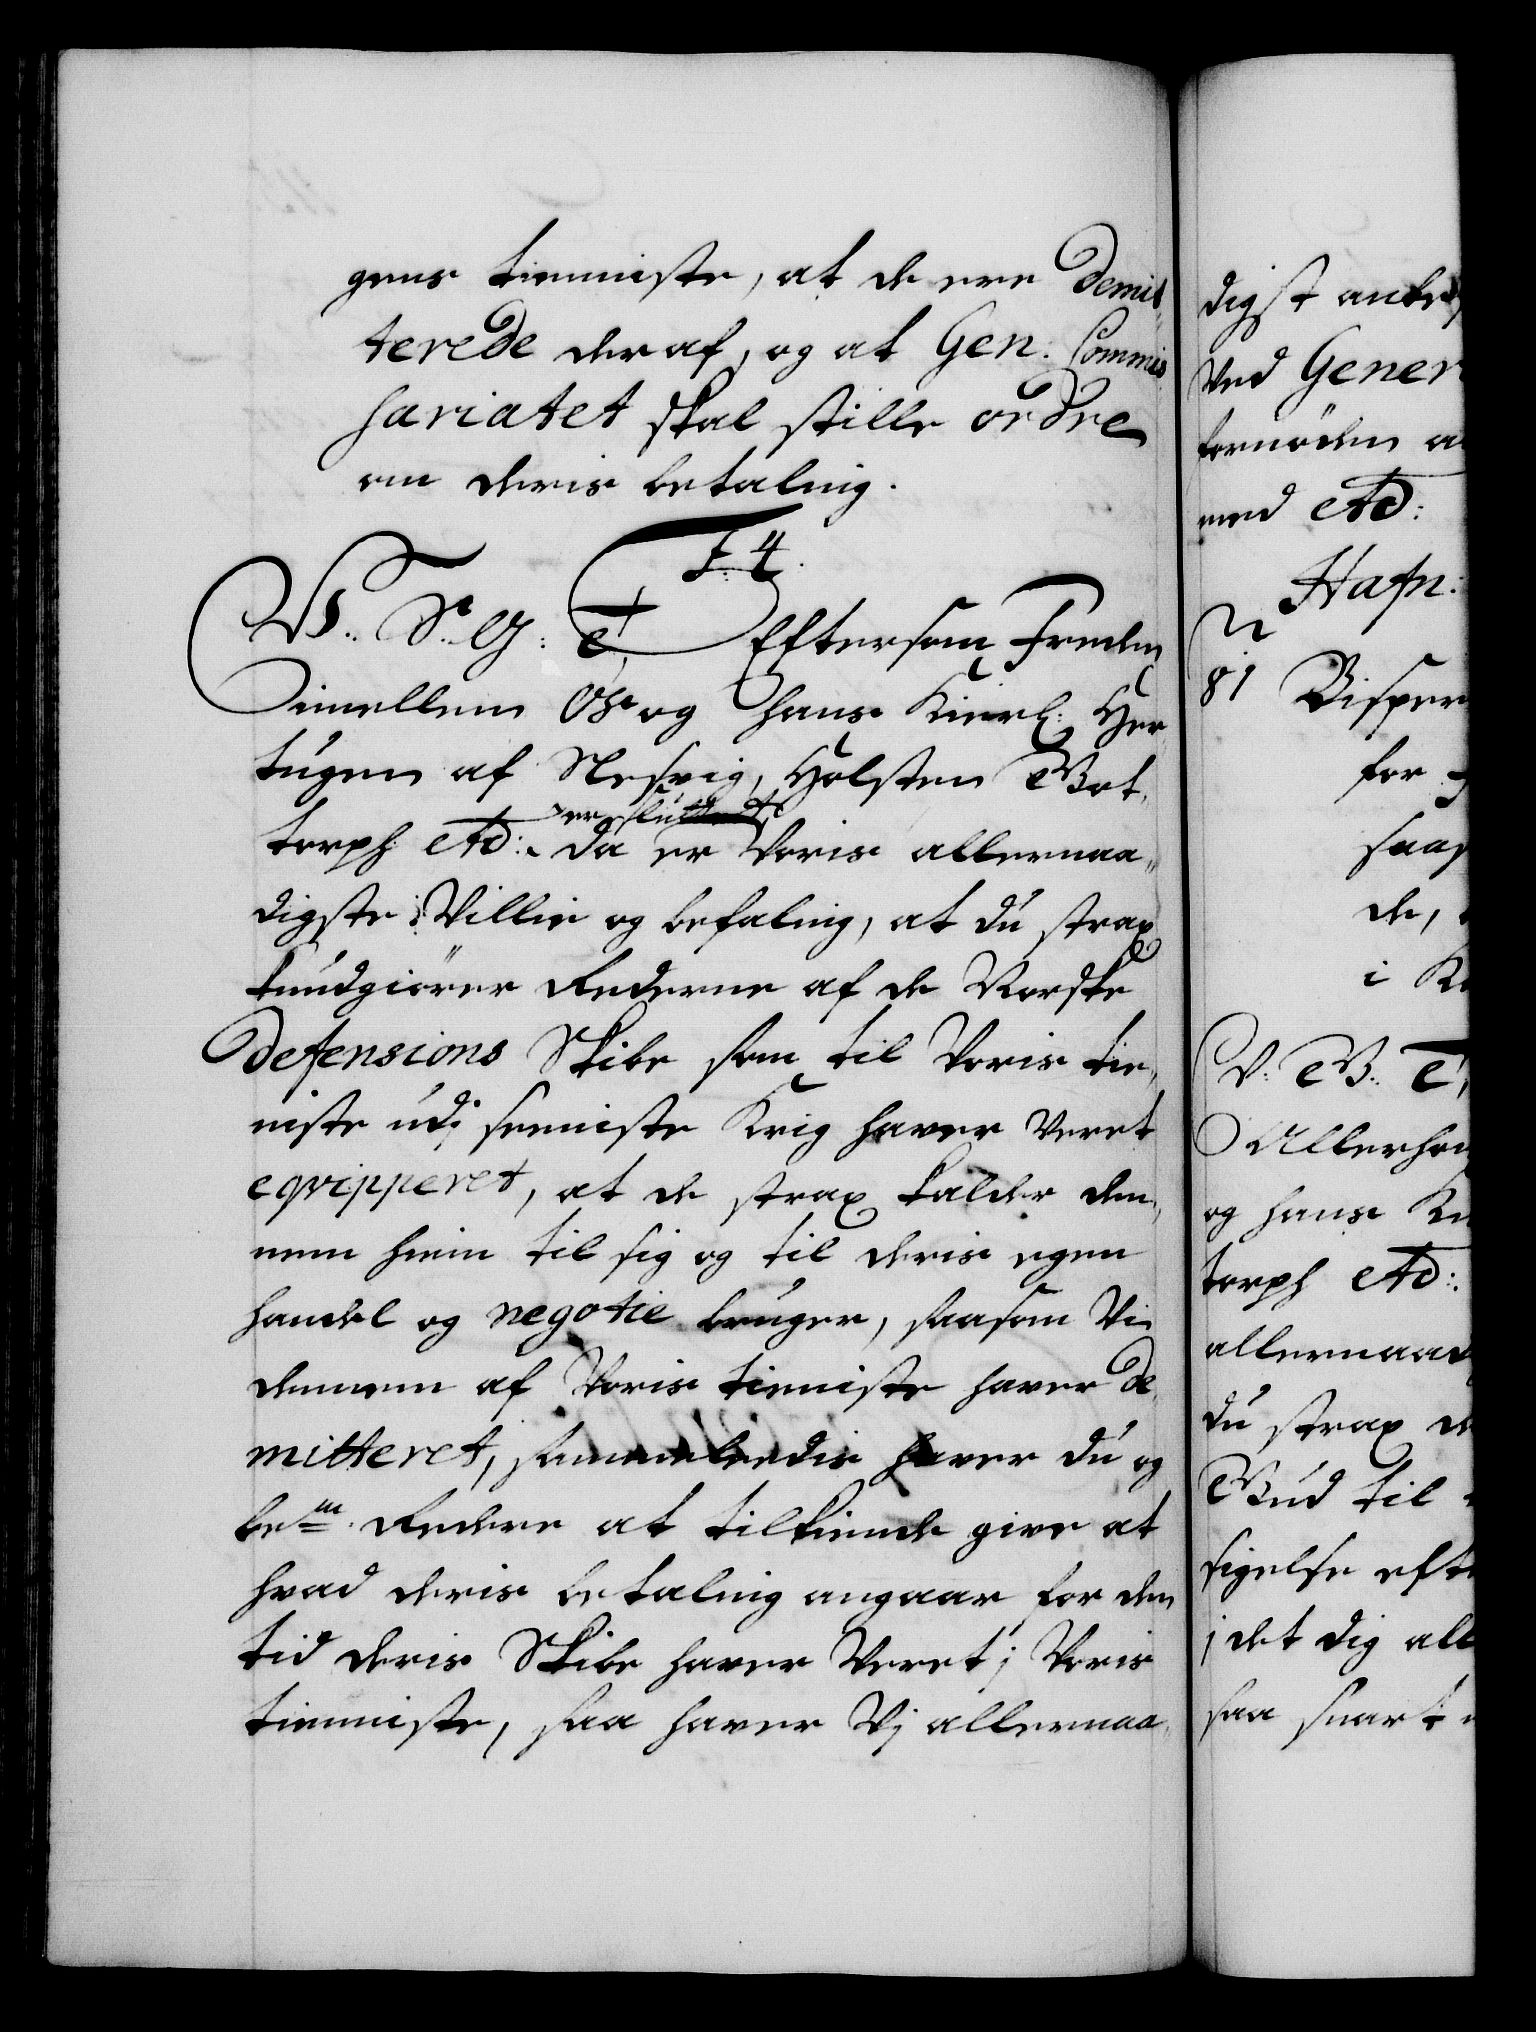 gens tienniste, at de ere Demit
terede deraf, og at Gen: Commis
sariatet skal stille ordre
om deris betaling.
F 4.
V. S. G: T. Eftersom Freden
imellem Os og hans Kierl: Her
tugen af Slesvig, Holsten Got,
er sluttet
torph etc:. da er Voris allernaa,,
digste Villie og befaling, at du strax
kundgiører Rederne af de Norske
Defensions Skibe som til Voris tie,
niste udj seeniste Krig haver Veret
eqvipperet, at de strax kalder den,
nem hiem til sig og til deris egen
handel og negotie bruger, saasom Vi
dennem af Voris tieniste haver De,
mitteret, sammeledis haver du og
bem. Redere at tilkiende give at
hvad deris betaling angaar for den
tid deris Skibe haver Veret j Voris
tienniste, saa haver Vj allernaa,
digst anbe
Ved Gener
fornøden a
med etc:
Hafn:
81 Bisper
for
saa
de,
i K
V. G. T,
Allerhø
og hans K
torph etc:.
allernaad
du strax d
Gud til
sigelse eft
j det dig all
saa snart